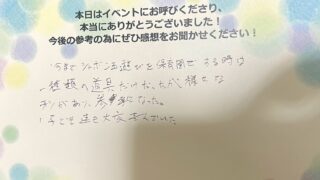 本日はイベントにお呼びくださり、
本当にありがとうございました！
今後の参考の為にぜひ感想をお聞かせください！
今までシャボン玉遊びを保育園でする時は
一種類の道具だけだったが様々な
ものがあり、参考になった。
子ども達も大変喜んでいた